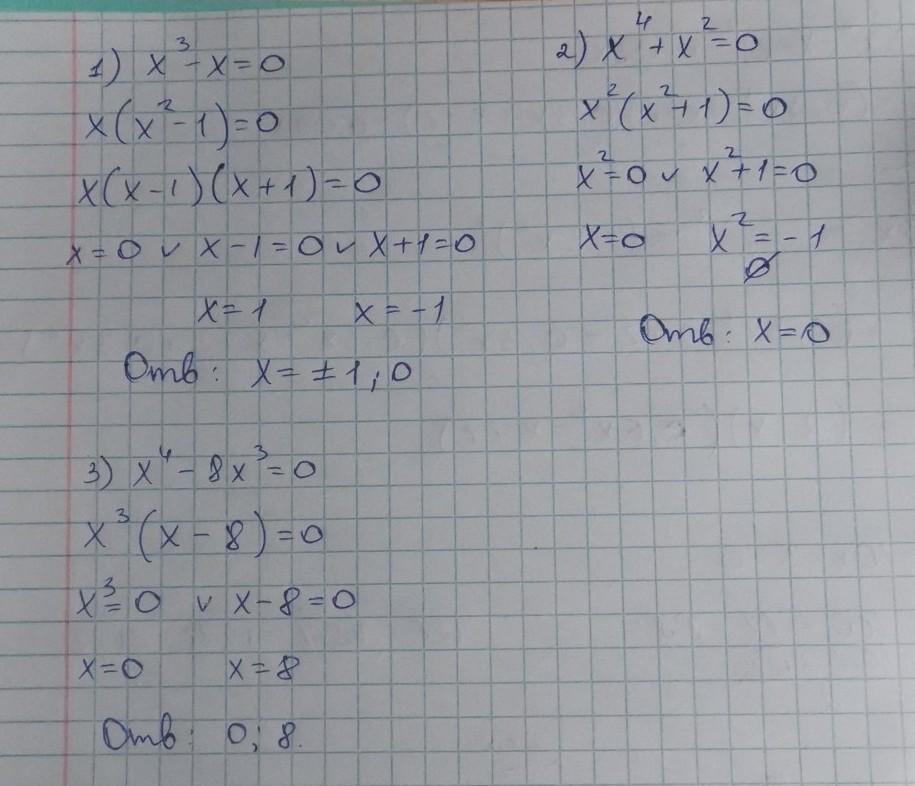 1) x³ - x = 0
x(x² - 1) = 0
x(x - 1)(x + 1) = 0
x = 0 ∨ x - 1 = 0 ∨ x + 1 = 0
x = 1 x = -1
Отв: x = ±1; 0
2) x⁴ + x² = 0
x²(x² + 1) = 0
x² = 0 ∨ x² + 1 = 0
x = 0 x² = -1
∅
Отв: x = 0
3) x⁴ - 8x³ = 0
x³(x - 8) = 0
x³ = 0 ∨ x - 8 = 0
x = 0 x = 8
Отв: 0; 8.